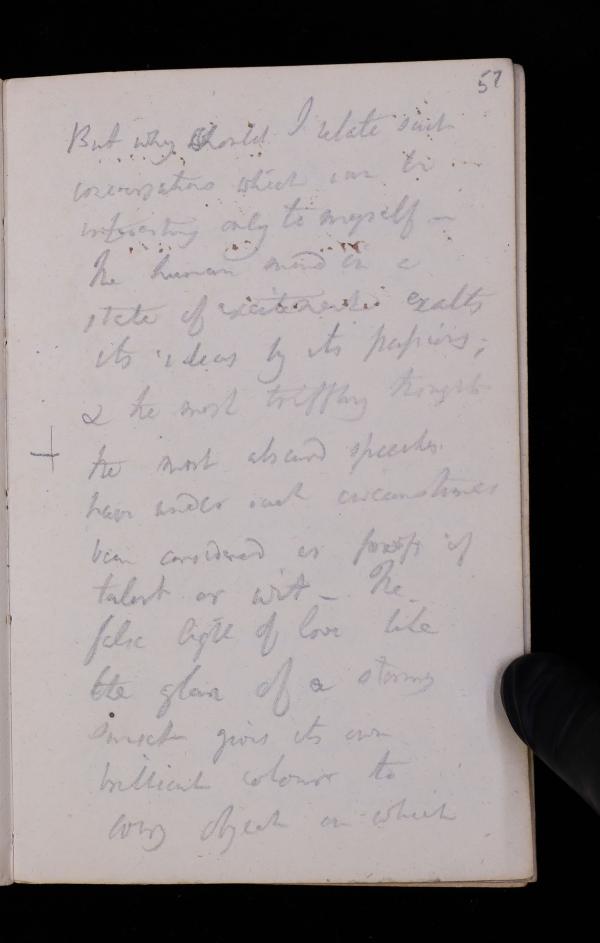 57
But why should I relate such
conversations which can be
interesting only to myself -
the human mind in a
state of excitement exalts
its ideas by its passions;
& the most triffling thoughts
the most absurd speeches
have under such circumstances
been considered as proofs of
talent or wit - The
false light of love like
the glare of a stormy
sunset gives its own
brilliant colours to
every object on which